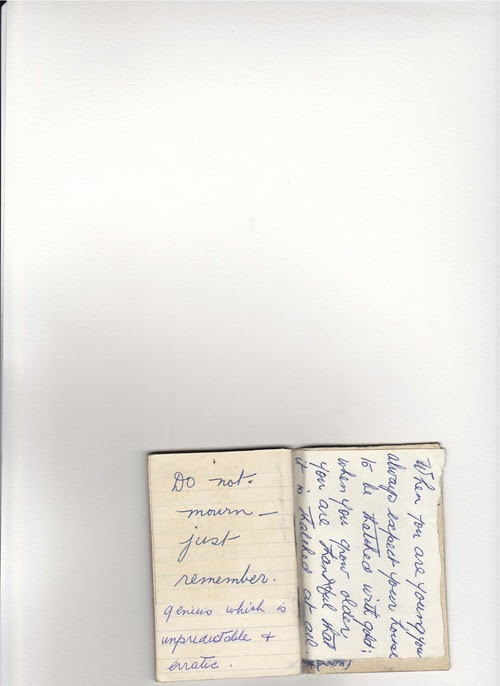 Do not
mourn —
just
remember.
genius which is
unpredictable +
erratic.
When you are young you
always expect your house
to be thatched with gold;
when you grow older
you are thankful that
it is thatched at all